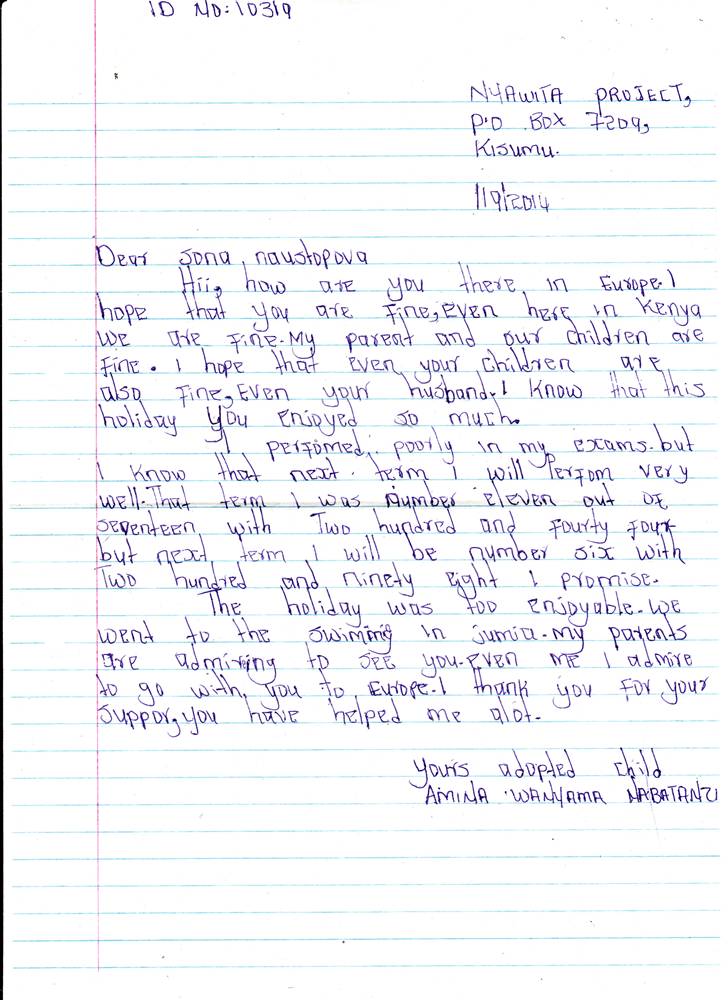 ID NO: 10319
NYAWITA PROJECT,
P.O .BOX 7209,
KISUMU.
1/9/2014
Dear Sona naustopova
Hii, how are you there in Europe. I
hope that you are fine, Even here in Kenya
we are fine. My parent and our children are
fine. I hope that Even your children are
also fine, Even your husband. I know that this
holiday you Enjoyed so much.
I perfomed poorly in my exams. but
I know that next term I will Perfom very
well. That term I was number eleven out of
seventeen with Two hundred and fourty four
but next term I will be number six with
Two hundred and ninety eight I promise.
The holiday was too enjoyable. we
went to the swiming in jumia. my parents
are admiring to see you. Even me I admire
to go with you to Europe. I thank you for your
suppor, you have helped me alot.
Yours adopted child
AMINA WANYAMA NABATANZI